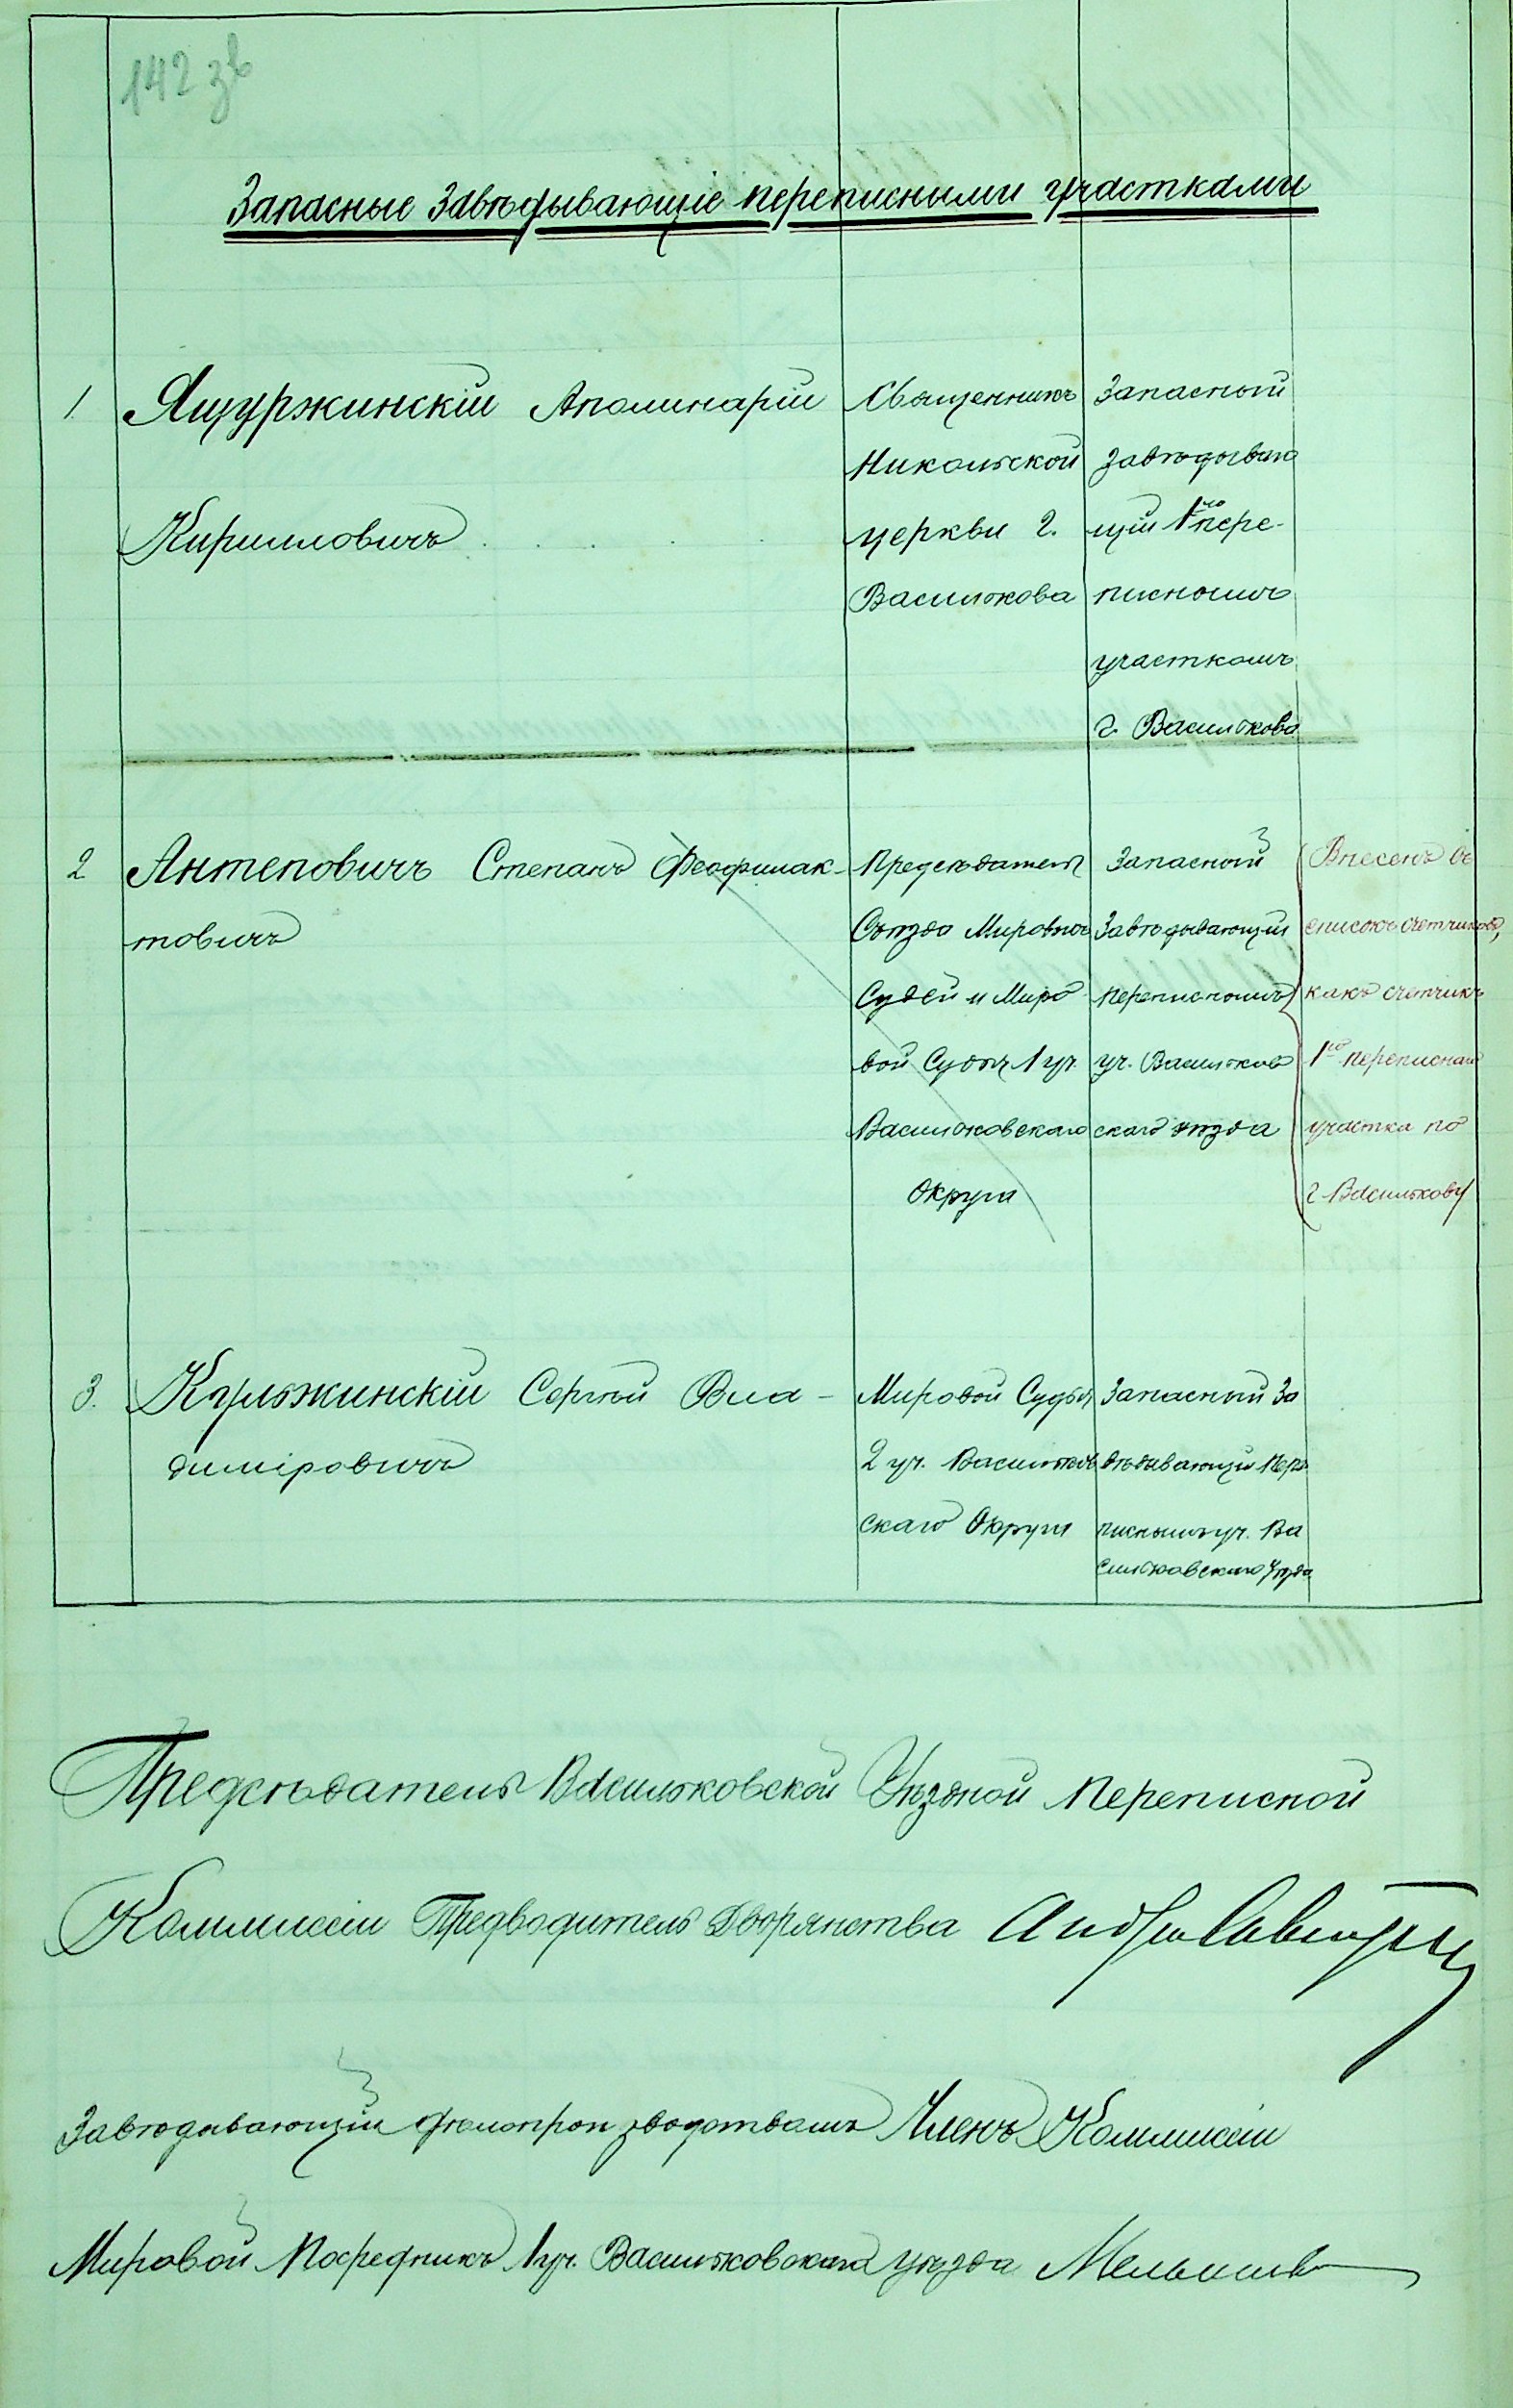 142 зв
Запасные Завѣдывающіе переписными участками
1. Ящуржинскій Аполинарій
Кирилловичъ . . . .
Священникъ
Никольской
церкви г.
Василькова
Запасный
завѣдываю
щій 1мъ пере-
писнымъ
участкомъ
г. Василькова
2 Антеповичъ Степанъ Феофилак-
товичъ
Предсѣдатель
Съѣзда Мировыхъ
Судей и Миро
вой Судья 1 уч.
Васильковскаго
Округа
Запасный
Завѣдывающій
переписнымъ
уч. Васильков
скаго уѣзда
Внесенъ въ
списокъ счетчиковъ,
какъ счетчикъ
1го переписнаго
участка по
г. Василькову
3. Кульжинскій Сергѣй Вла-
диміровичъ
Мировой Судья
2 уч. Васильков
скаго Округа
Запасный За
вѣдывающій пере
писнымъ уч. Ва
сильковскаго Уѣзда
Предсѣдатель Васильковской Уѣздной Переписной
Коммиссіи Предводитель Дворянства
Завѣдывающій дѣлопроизводствомъ Членъ Коммиссіи
Мировой Посредникъ 1 уч. Васильковскаго уѣзда